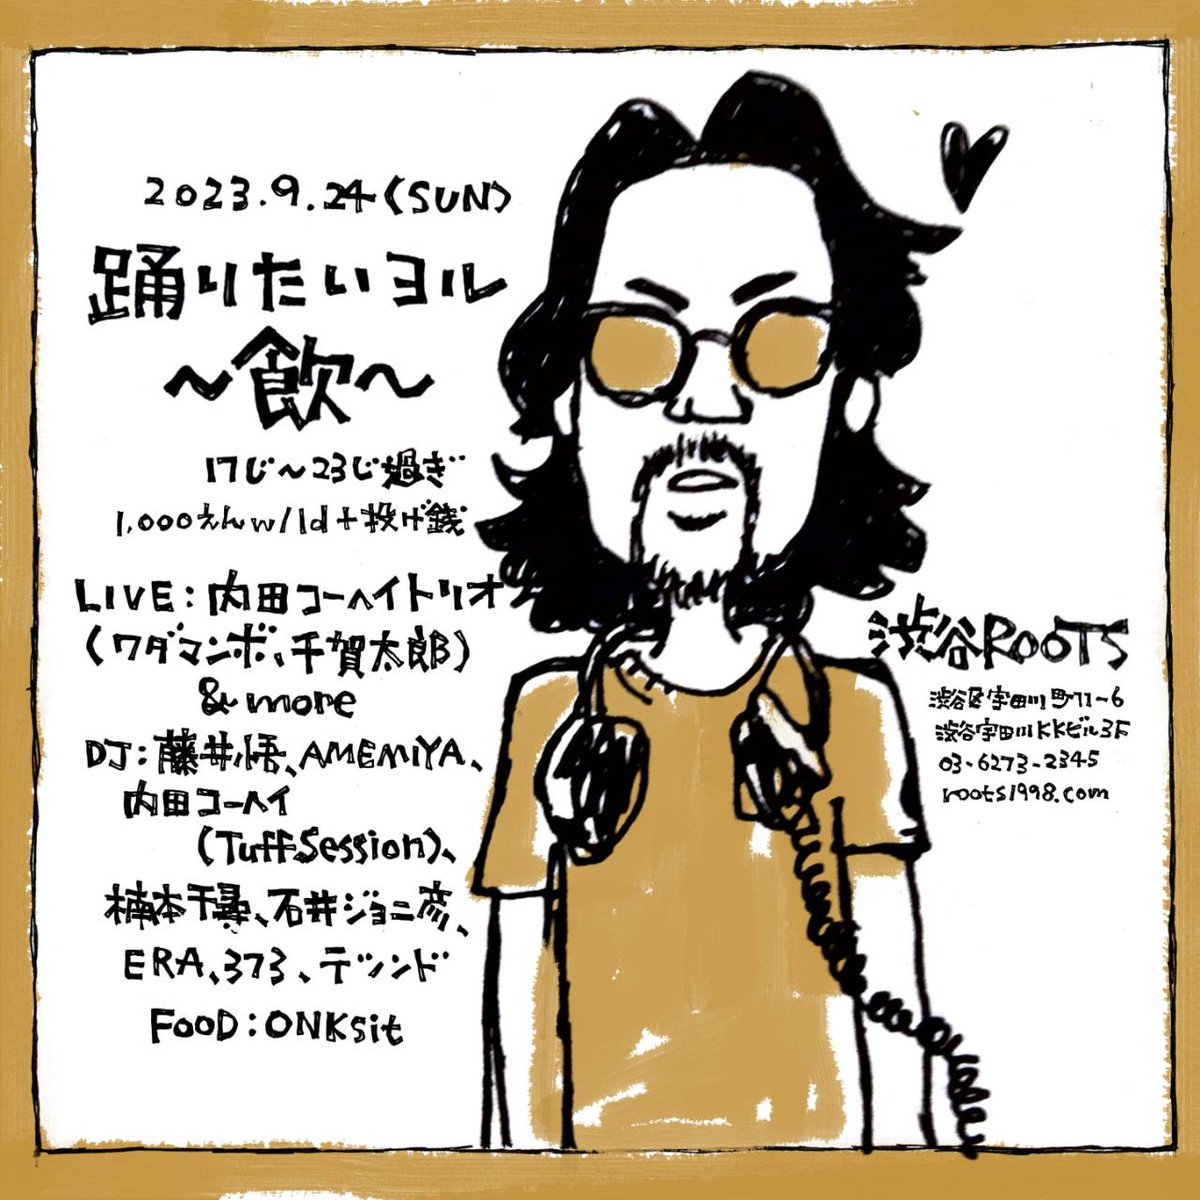 2023.9.24(SUN)
踊りたいヨル
〜飲〜
17じ〜23じ過ぎ
1,000えんw/1d+投げ銭
LIVE:内田コーヘイトリオ
(ワダマンボ、千賀太郎)
&more
DJ:藤井悟、AMEMIYA、
内田コーヘイ
(TuffSession)、
楠本千尋、石井ジョニ彦、
ERA、373、テツンド
FOOD:ONKsit
渋谷ROOTS
渋谷区宇田川町11-6
渋谷宇田川KKビル3F
03-6273-2345
roots1998.com